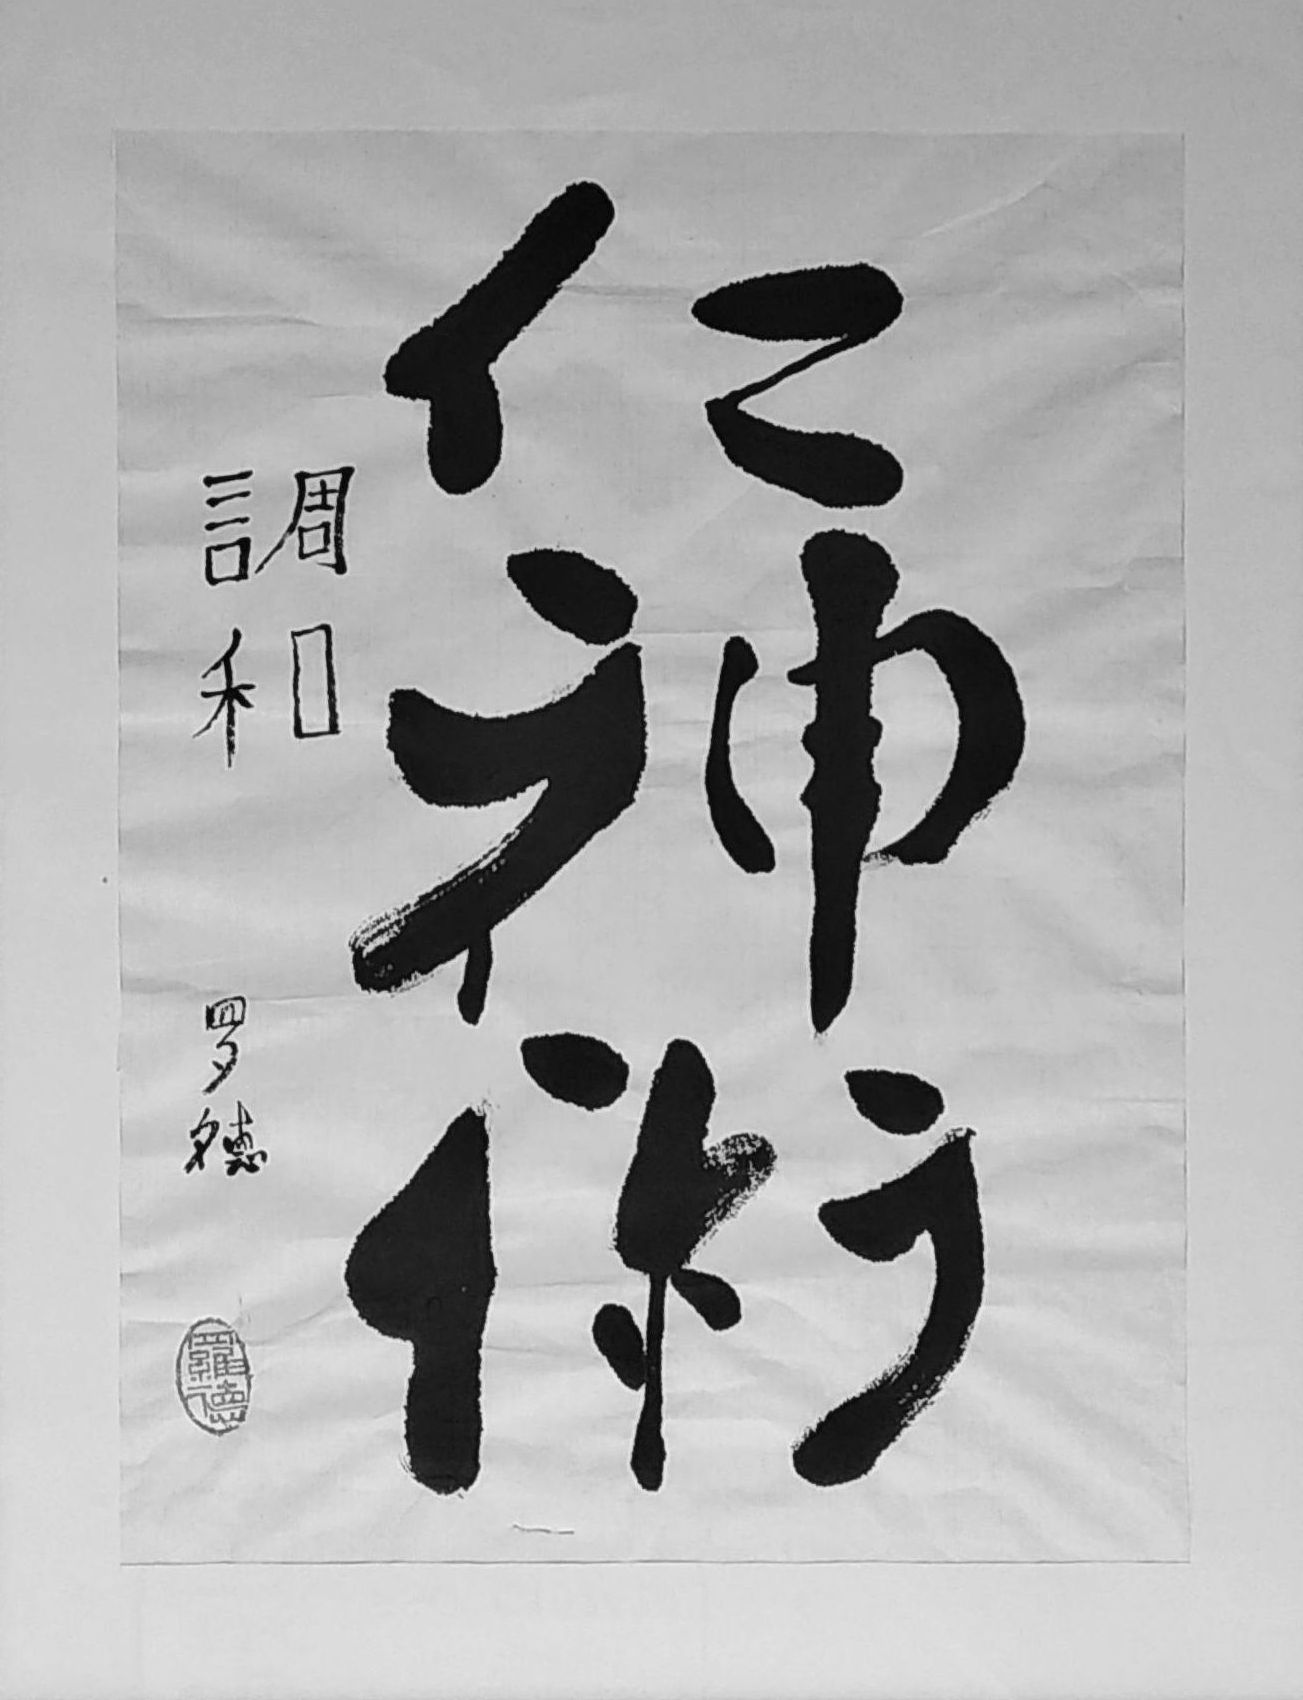 仁神術
調和
罗德
羅德